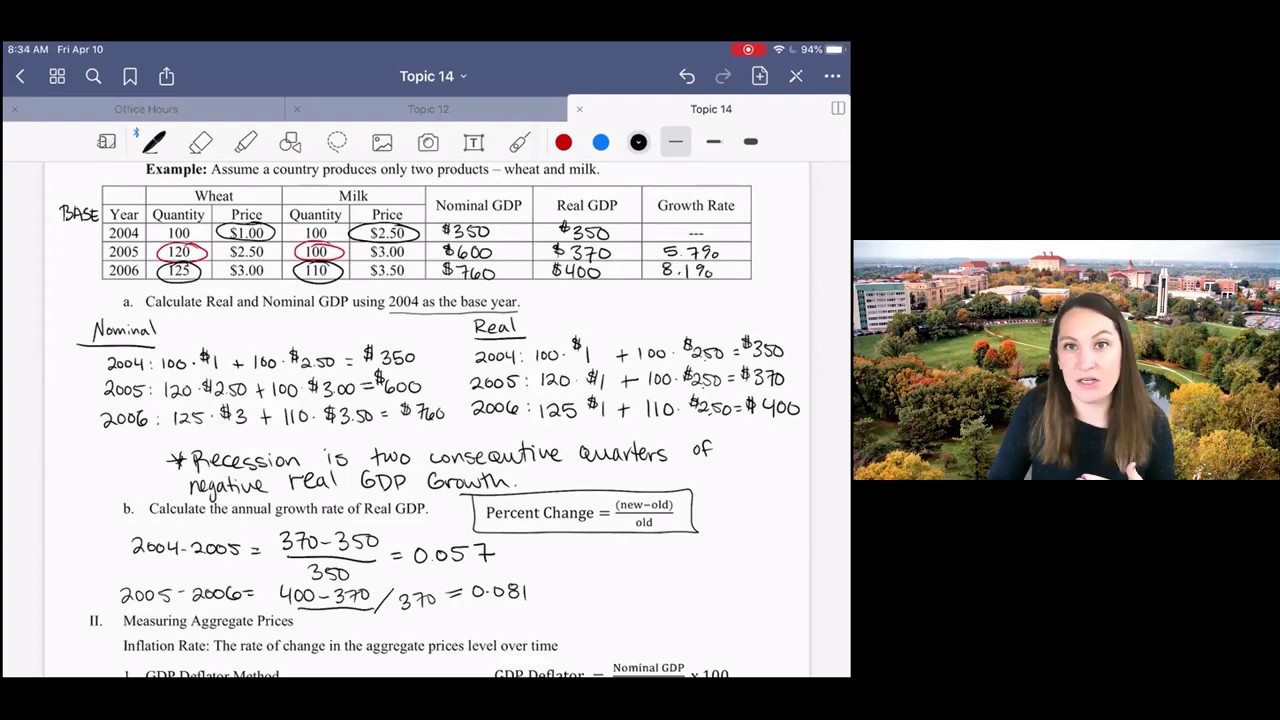 8:34 AM Fri Apr 10
94%
Topic 14
Office Hours
Topic 12
Topic 14
Example: Assume a country produces only two products – wheat and milk.
Wheat Milk Nominal GDP Real GDP Growth Rate
BASE Year Quantity Price Quantity Price
2004 100 $1.00 100 $2.50 $350 $350 ---
2005 120 $2.50 100 $3.00 $600 $370 5.7%
2006 125 $3.00 110 $3.50 $760 $400 8.1%
a. Calculate Real and Nominal GDP using 2004 as the base year.
Nominal
2004: 100 · $1 + 100 · $2.50 = $350
2005: 120 · $2.50 + 100 · $3.00 = $600
2006: 125 · $3 + 110 · $3.50 = $760
Real
2004: 100 · $1 + 100 · $2.50 = $350
2005: 120 · $1 + 100 · $2.50 = $370
2006: 125 $1 + 110 · $2.50 = $400
* Recession is two consecutive quarters of
negative real GDP Growth.
b. Calculate the annual growth rate of Real GDP.
Percent Change = (new−old)
old
2004-2005 = 370-350 = 0.057
350
2005-2006 = 400-370 / 370 = 0.081
II. Measuring Aggregate Prices
Inflation Rate: The rate of change in the aggregate prices level over time
1. GDP Deflator Method
GDP Deflator = Nominal GDP x 100